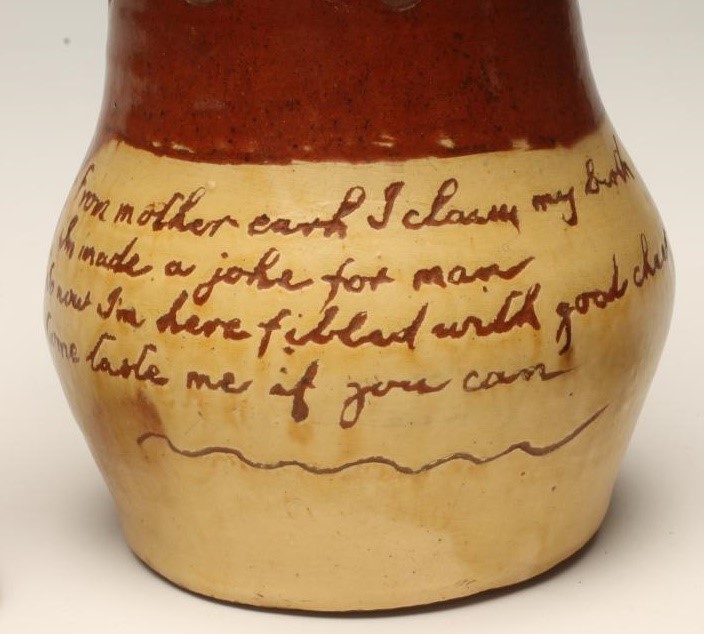 From mother earh I claim my birth
made a joke for man
now I'm here fiblad with good
Come taste me if you can